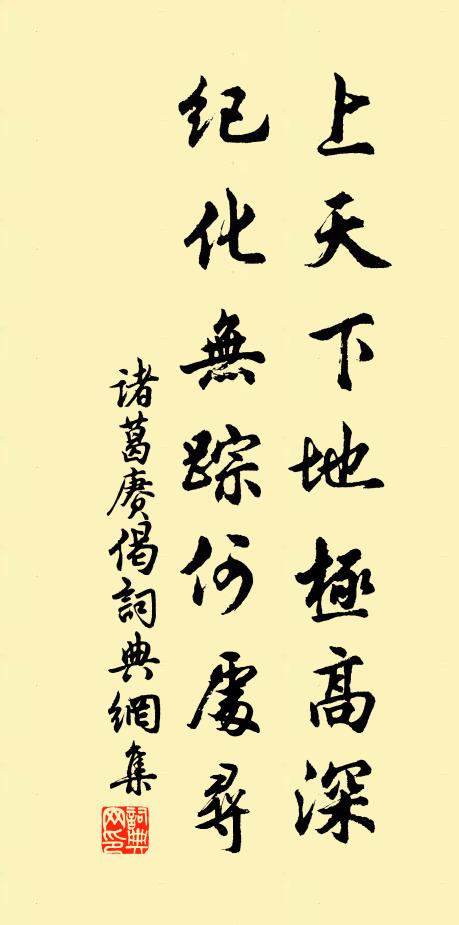 上天下地極高深
紀化無踪何處尋
諸葛賡偈詞典網集
詞典網印